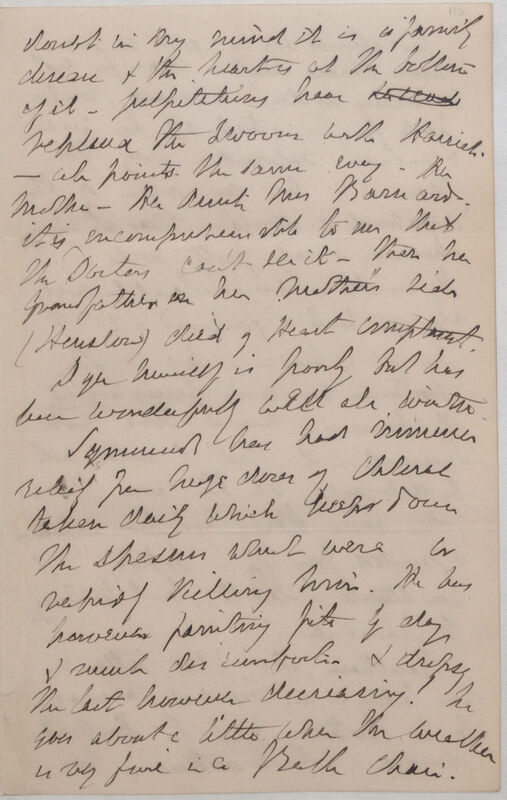 doubt in my mind it is a family
disease & the heart is at the bottom
of it — palpitations have
replaced the swoons with Harriet
— all points the same way — Her
mother — Her Aunt Mrs Barnard.
it is incomprehensible to me that
the Doctors can't see it — then her
Grandfather on her mother's side
(Henslow) died of Heart complaint.
Dyer himself is poorly but has
been wonderfully well all winter.
Symonds has had immense
relief from huge doses of Chloral
taken daily which keeps down
the spasms which were so
rapidly killing him. He has
however fainting fits by day
& much discomfort & dropsy
the last however decreasing! he
goes about a little when the weather
is very fine in a Bath Chair.